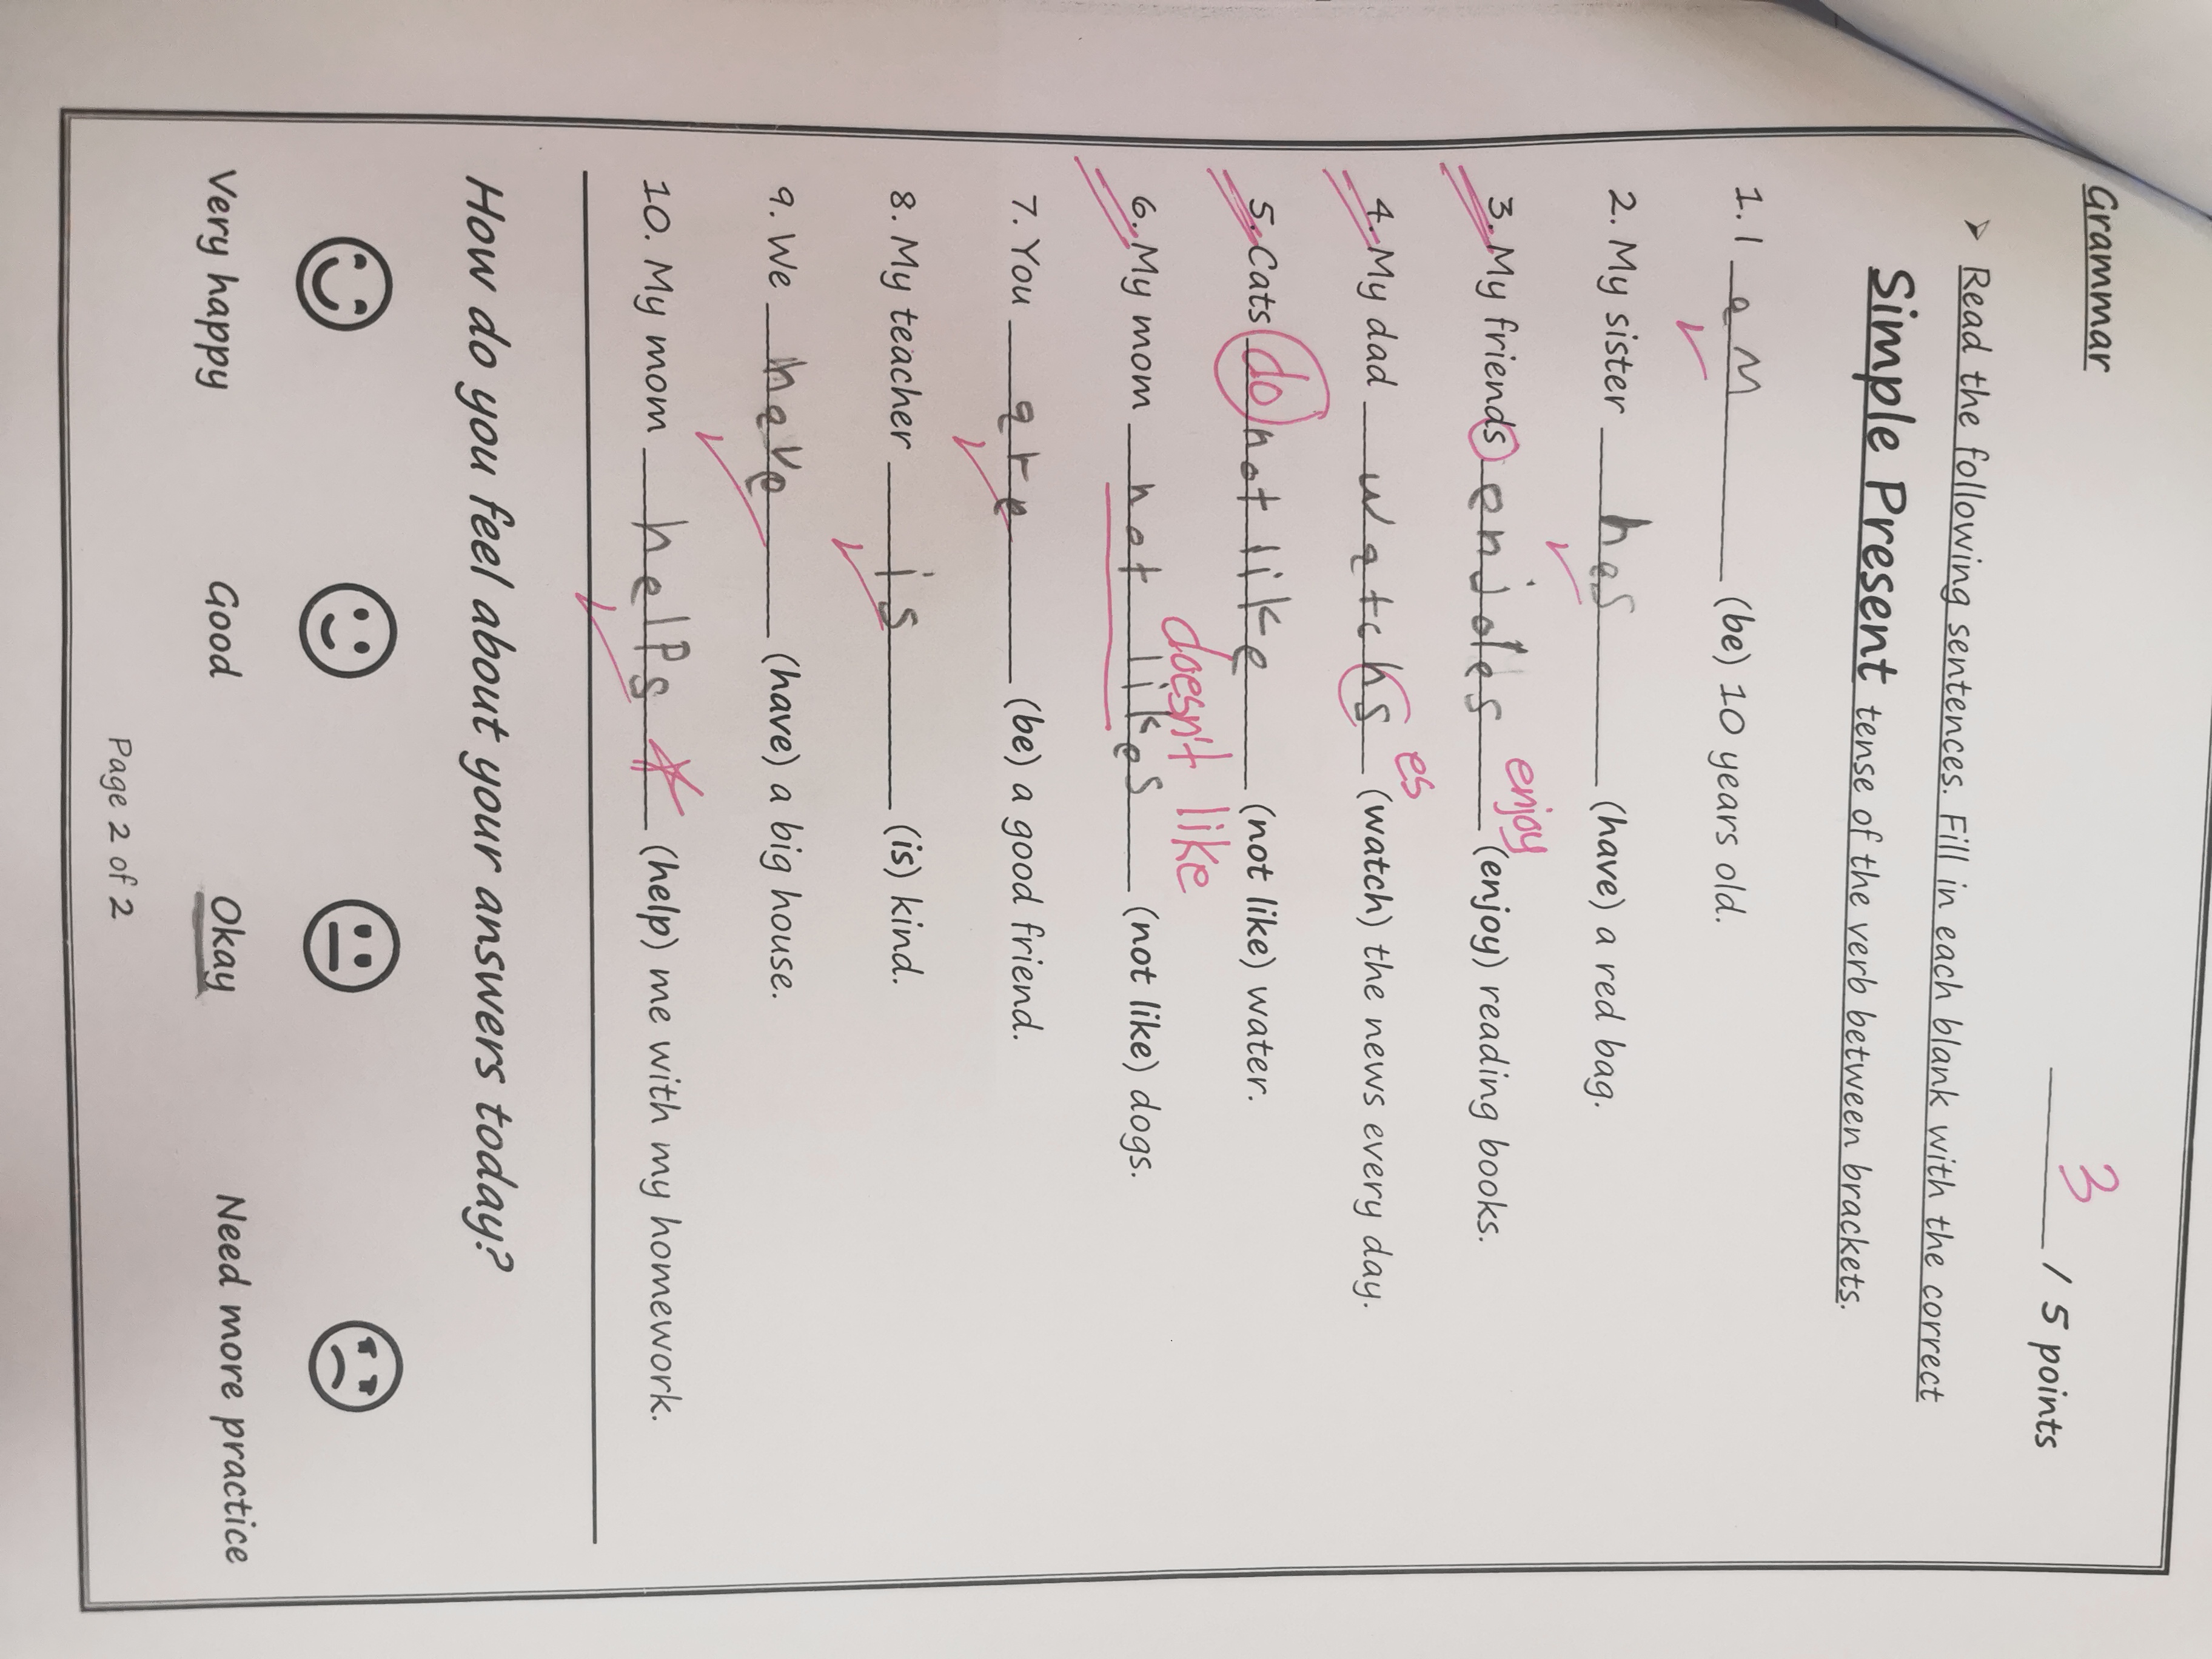 Grammar
3 / 5 points
➤ Read the following sentences. Fill in each blank with the correct
Simple Present tense of the verb between brackets.
1. I am (be) 10 years old.
2. My sister has (have) a red bag.
enjoy
3. My friends enjoies (enjoy) reading books.
es
4. My dad watchs (watch) the news every day.
5. Cats do not like (not like) water.
doesn't like
6. My mom not likes (not like) dogs.
7. You are (be) a good friend.
8. My teacher is (is) kind.
9. We have (have) a big house.
10. My mom helps (help) me with my homework.
How do you feel about your answers today?
Very happy Good Okay Need more practice
Page 2 of 2